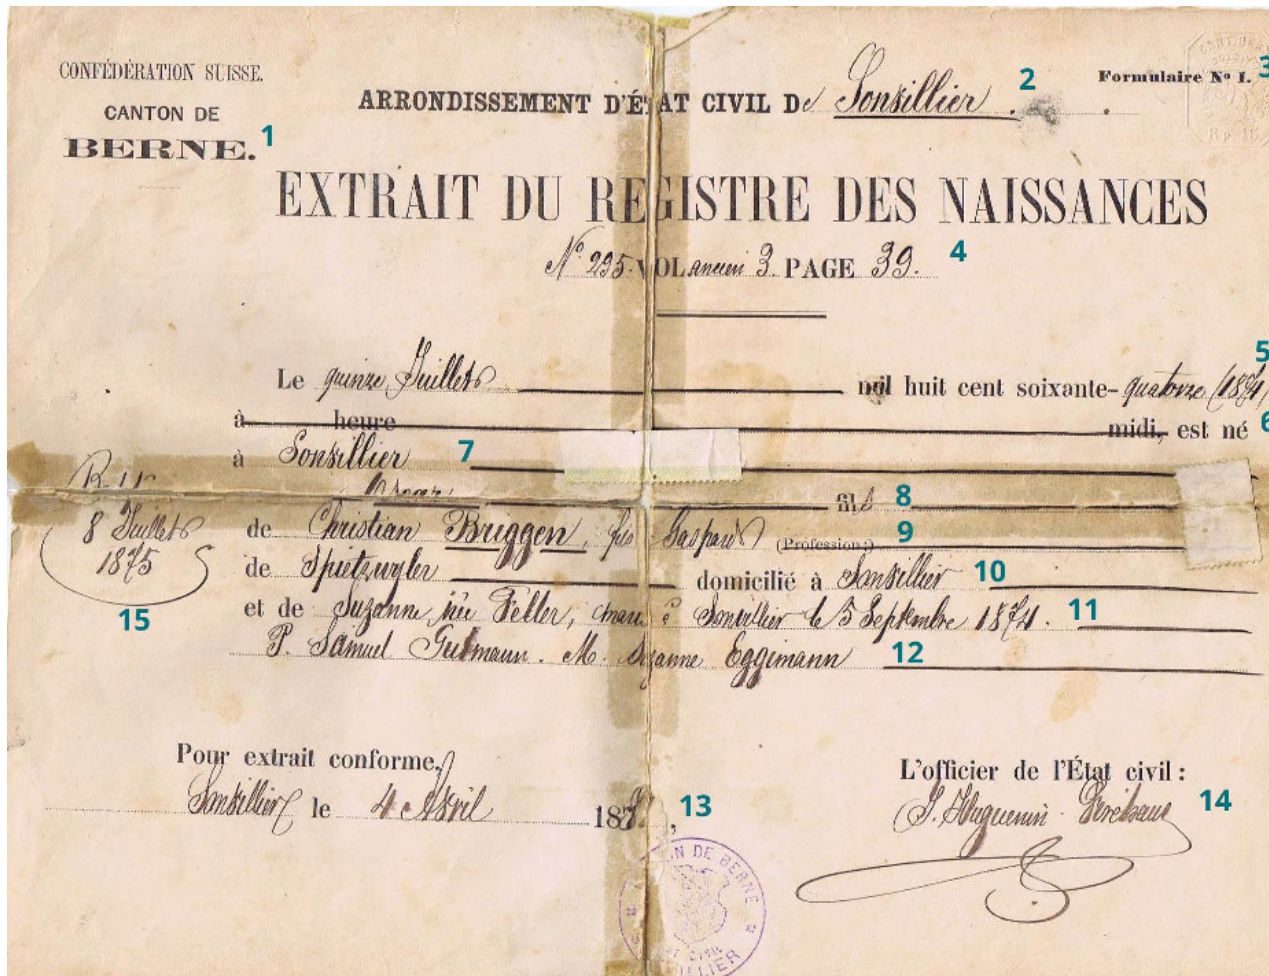 CONFÉDÉRATION SUISSE.
CANTON DE
BERNE. 1
Formulaire Nº I. 3
ARRONDISSEMENT D'ÉTAT CIVIL De Sonvillier. 2
EXTRAIT DU REGISTRE DES NAISSANCES
Nº 235. VOL ancien 3. PAGE 39. 4
5
Le quinze Juillet mil huit cent soixante-quatorze (1874)
à heure midi, est né 6
à Sonvillier 7
fils 8
de Christian Briggen, fils Gaspard (Profession:) 9
de Spietzwyler domicilié à Sonvillier 10
et de Suzanne née Feller, mariés à Sonvillier le 5 Septembre 1874. 11
P. Samuel Gutmann. M. Suzanne Eggimann 12
8 Juillet
1875
15
Pour extrait conforme,
Sonvillier le 4 Avril 187 13
L'officier de l'État civil:
J. Huguenin 14
CANTON DE BERNE
ÉTAT CIVIL
SONVILLIER